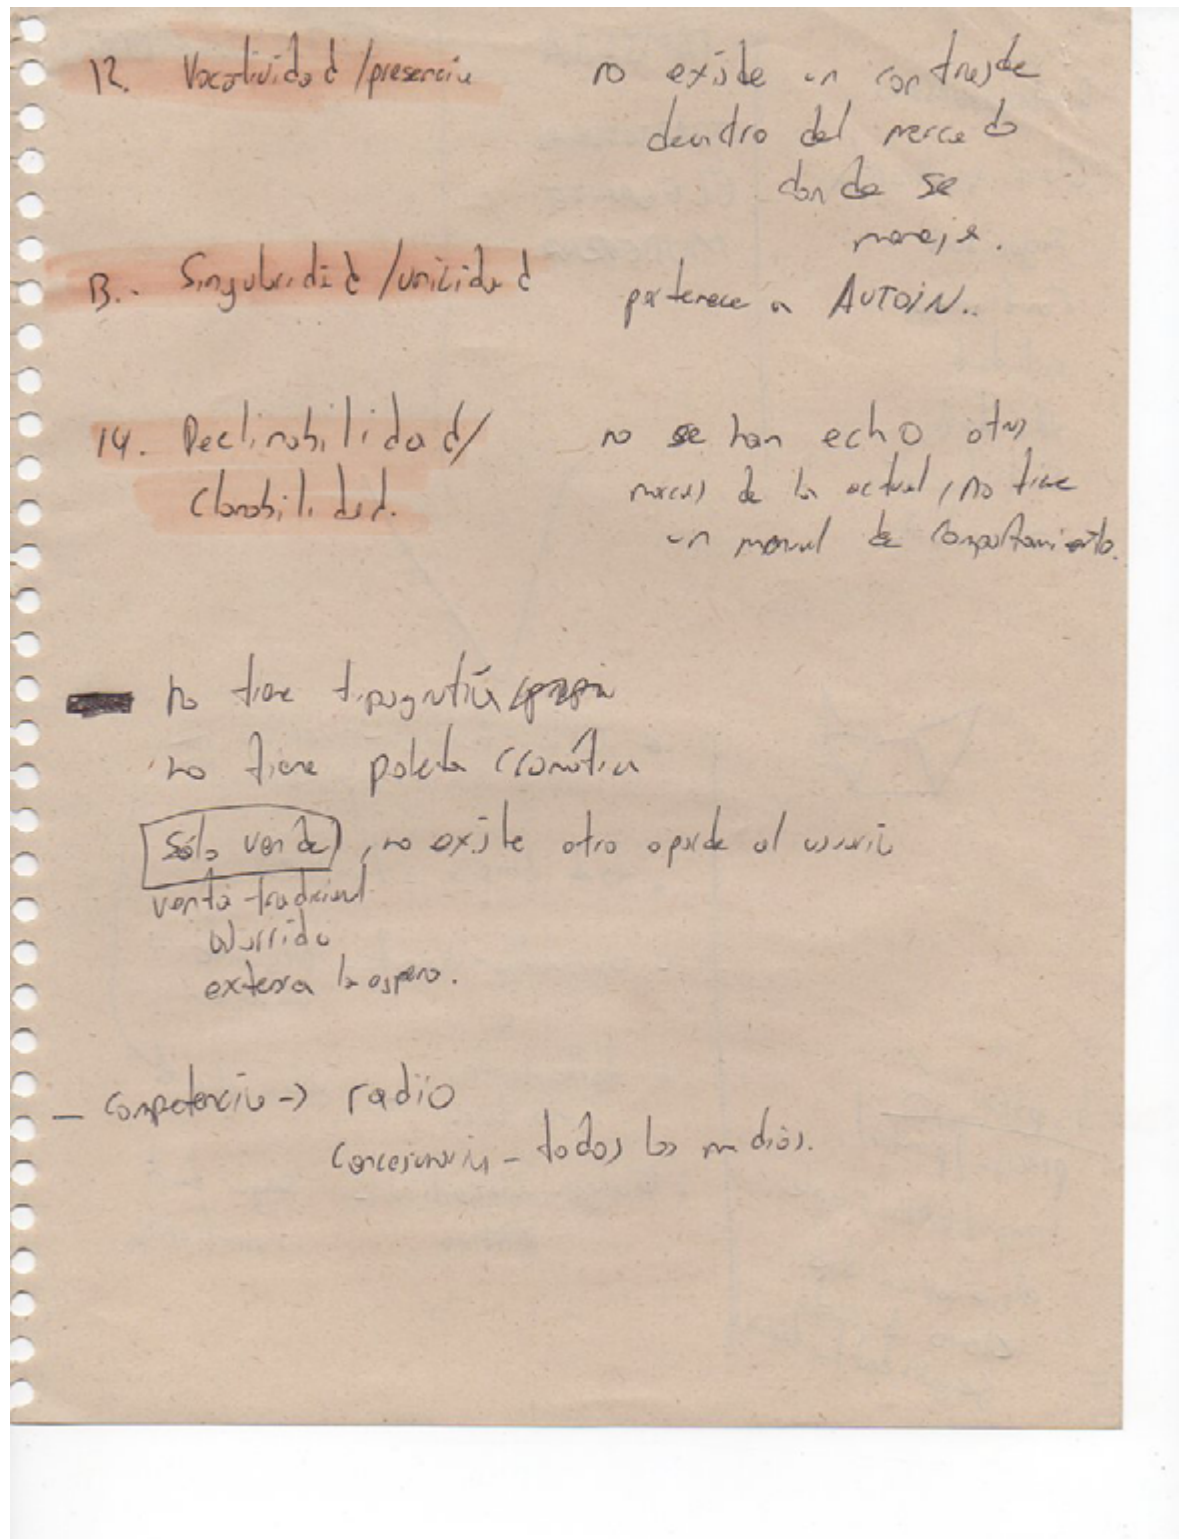 12. Vocatividad/presencia no existe un contraste
dentro del mercado
donde se
maneja.
13.- Singularidad/unicidad pertenece a AUTOIN..
14. Declinabilidad/ no se han echo otras
clonabilidad. marcas de la actual, no tiene
un manual de comportamiento.
no tiene tipografía propia
no tiene paleta cromática
Sólo vende, no existe otro aporte al usuario
venta tradicional
aburrida
extensa la espera.
- competencia -> radio
concesionaria - todos los medios.